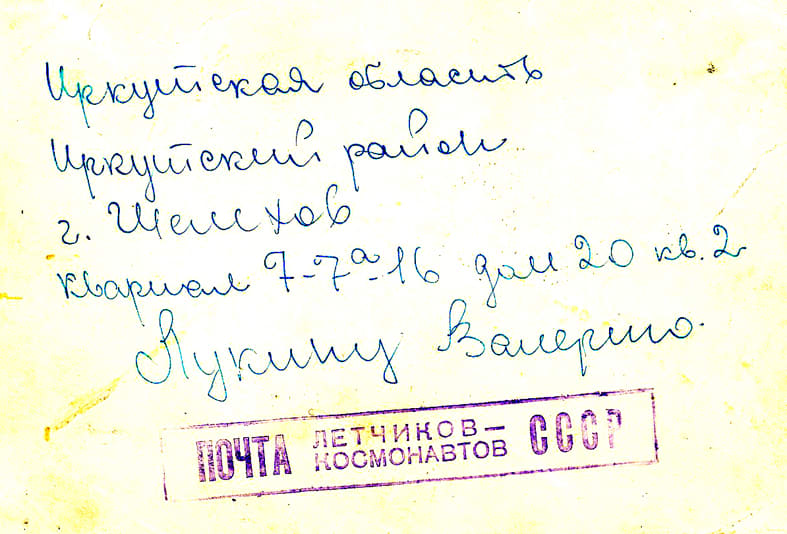 Иркутская область
Иркутский район
г. Шелехов
квартал 7-7а-16 дом 20 кв. 2
Лукину Валерию.
ПОЧТА ЛЕТЧИКОВ-
КОСМОНАВТОВ СССР